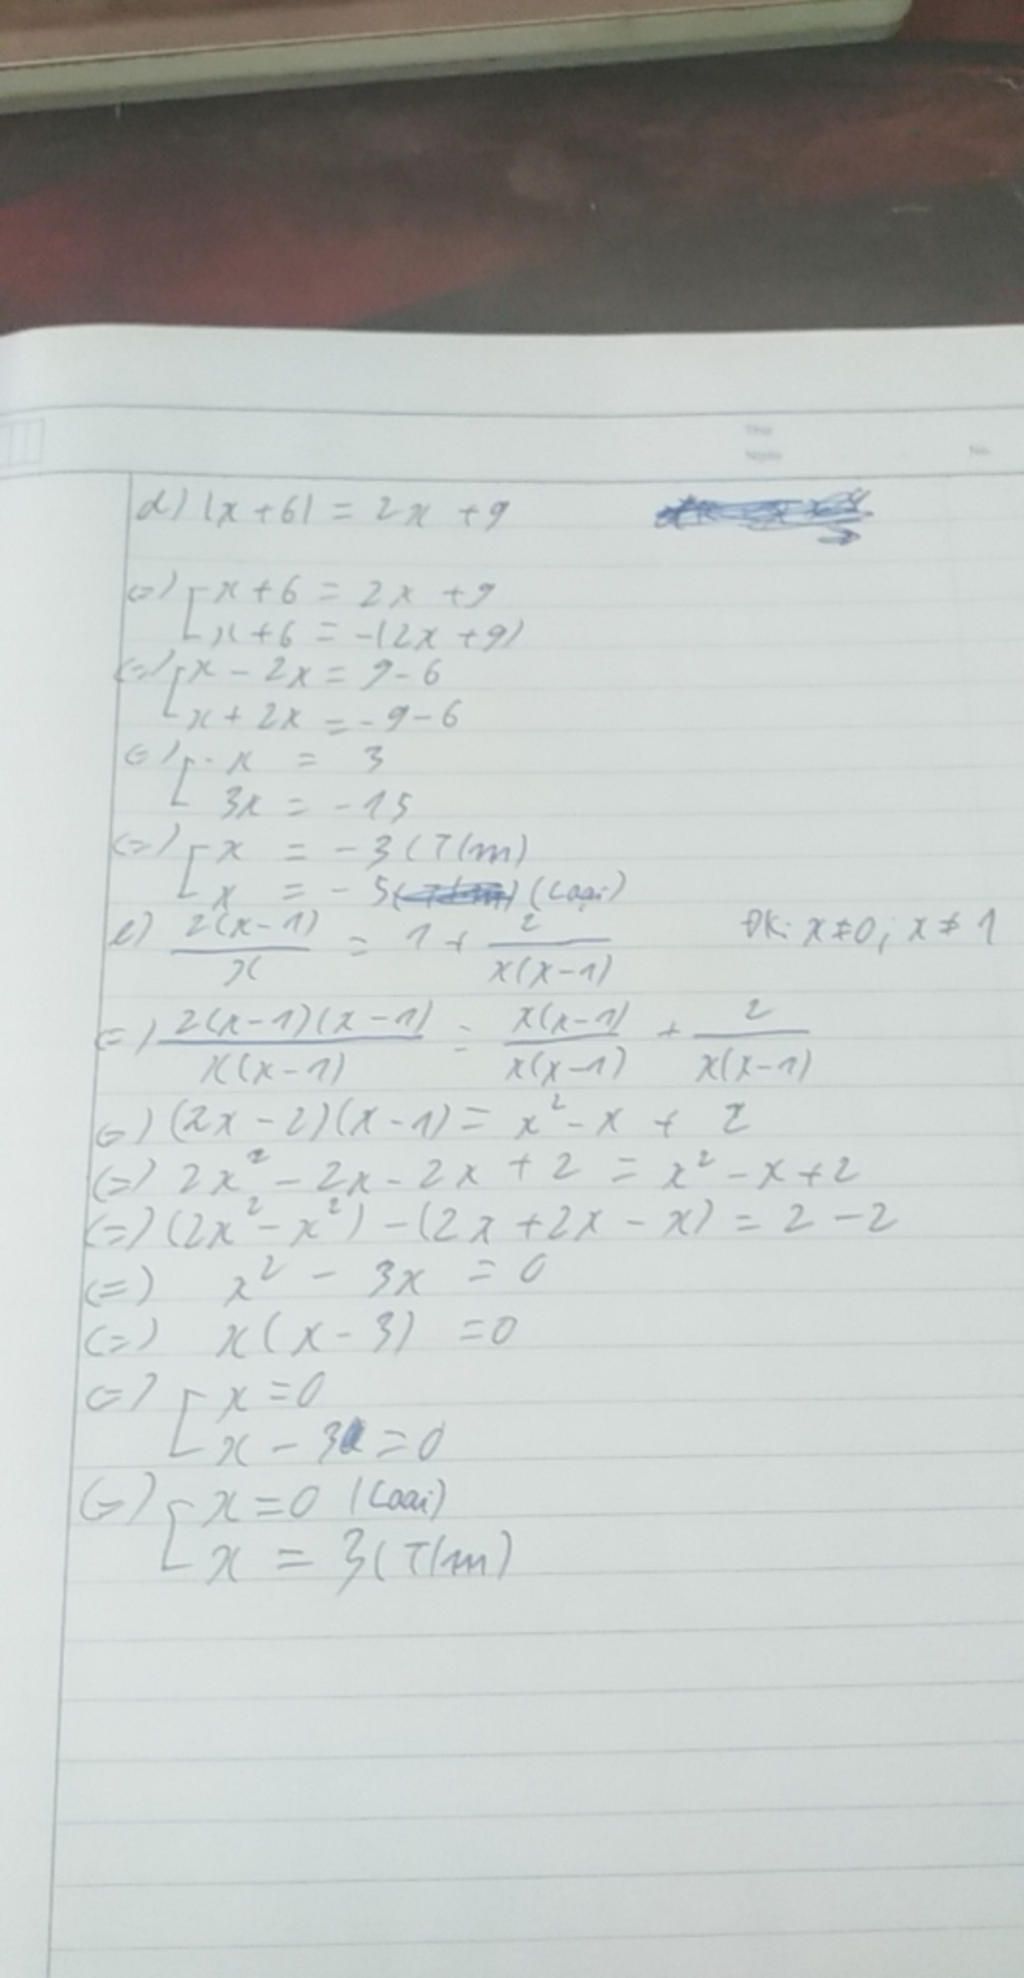 Thứ
Ngày
No.
d) |x+6| = 2x +9
<=> [ x+6 = 2x +9
x+6 = -(2x +9)
<=> [ x - 2x = 9-6
x + 2x = -9-6
<=> [ -x = 3
3x = -15
<=> [ x = -3 (T/m)
x = -5 (Loại)
e) 2(x-1)/x = 1 + 2/x(x-1) ĐK: x≠0; x≠1
<=> 2(x-1)(x-1)/x(x-1) = x(x-1)/x(x-1) + 2/x(x-1)
<=> (2x-2)(x-1) = x² - x + 2
<=> 2x² - 2x - 2x + 2 = x² - x + 2
<=> (2x² - x²) - (2x + 2x - x) = 2 - 2
<=> x² - 3x = 0
<=> x(x-3) = 0
<=> [ x = 0
x - 3 = 0
<=> [ x = 0 (Loại)
x = 3 (T/m)